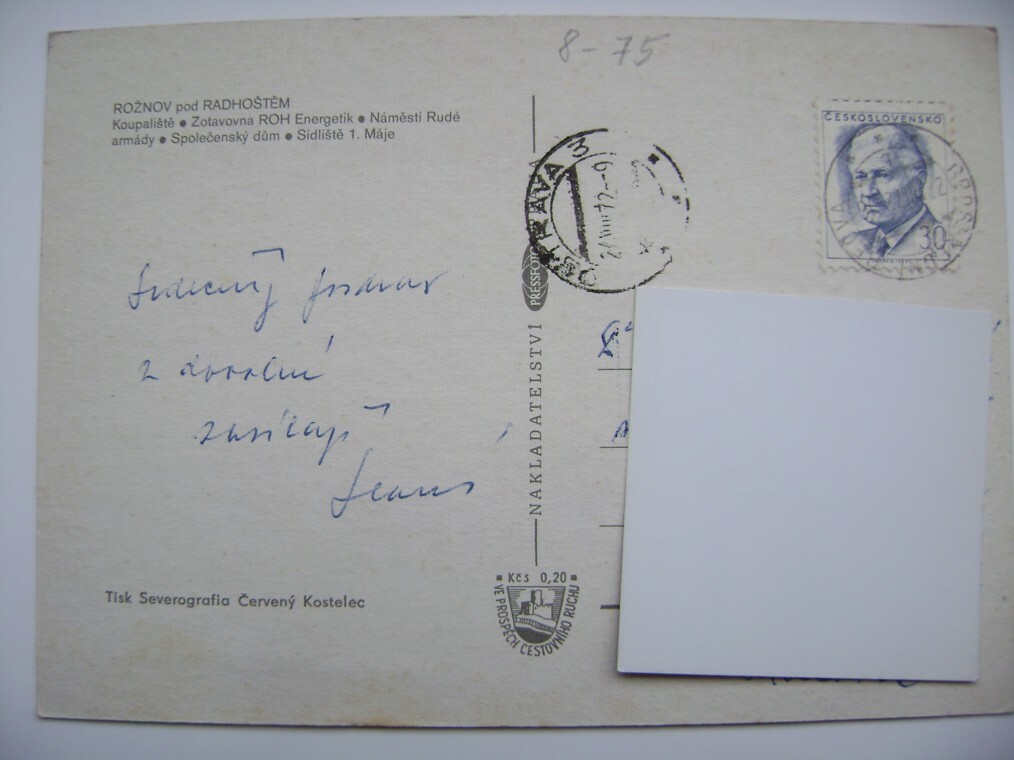 8-75
ROŽNOV pod RADHOŠTĚM
Koupaliště • Zotavovna ROH Energetik • Náměstí Rudé
armády • Společenský dům • Sídliště 1. Máje
ČESKOSLOVENSKO
30
OSTRAVA 3
Srdečný pozdrav
z dovolené
zasílají
NAKLADATELSTVÍ PRESSFOTO
Kčs 0,20
VE PROSPĚCH CESTOVNÍHO RUCHU
Tisk Severografia Červený Kostelec